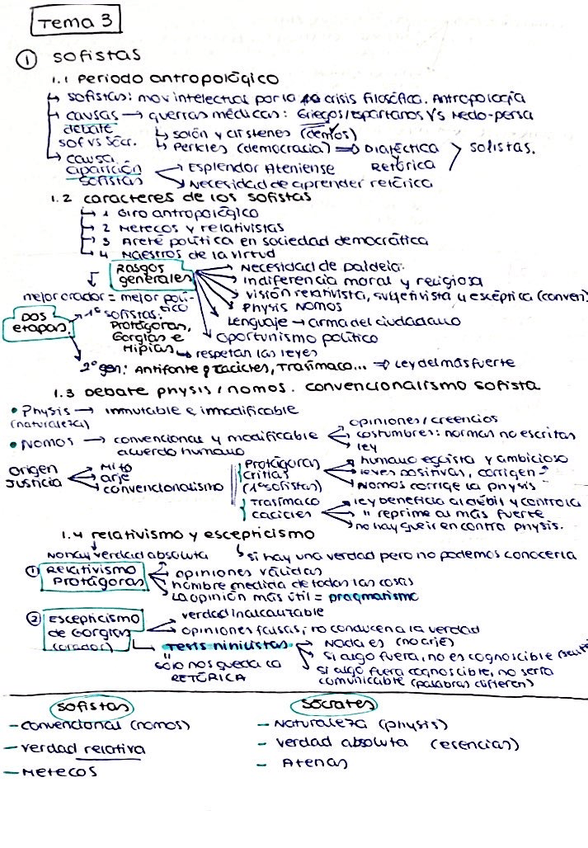 Tema 3
① sofistas
1.1 Periodo antropológico
sofistas: mov intelectual por la crisis filosófica. Antropología
causas → guerras médicas: Griegos/espartanos VS Medo-persa
debate
sof vs Sócr.
Solón y Clístenes (demos)
Perícles (democracia) ⇒ Dialéctica
Retórica
sofistas.
causa
aparición
sofistas
Esplendor Ateniense
Necesidad de aprender retórica
1.2 caracteres de los sofistas
1 Giro antropológico
2 Metecos y relativistas
3 Areté política en sociedad democrática
4 Maestros de la virtud
Rasgos
generales
Necesidad de Paideia.
Indiferencia moral y religiosa
visión relativista, subjetivista y escéptica (conven)
Physis Nomos
Lenguaje → arma del ciudadano
Oportunismo político
mejor orador = mejor político
Dos
etapas
1ª sofistas:
Protágoras,
Gorgias e
Hipias
respetan las leyes
2ª gen: Antifonte y cacicles, Trasímaco... ⇒ Ley del más fuerte
1.3 Debate physis / nomos. convencionalismo sofista
• Physis → inmutable e inmodificable
(naturaleza)
• Nomos → convencional y modificable
acuerdo humano
opiniones / creencias
costumbres: normas no escritas
ley
origen
Justicia
Mito
arjé
convencionalismo
Protágoras
Critias
(1ª sofistas)
humano egoísta y ambicioso
leyes positivas, corrigen
Nomos corrige la physis
Trasímaco
cacicles
ley beneficia al débil y controla
" reprime al más fuerte
no hay que ir en contra physis.
1.4 relativismo y escepticismo
No hay verdad absoluta
si hay una verdad pero no podemos conocerla
① Relativismo
Protágoras
opiniones válidas
hombre medida de todas las cosas
La opinión más útil = pragmatismo
② Escepticismo
de Gorgias
verdad inalcanzable
opiniones falsas, no conducen a la verdad
Tesis nihilistas
"
sólo nos queda la
RETÓRICA
Nada es (no arjé)
si algo fuera, no es cognoscible
si algo fuera cognoscible, no sería
comunicable (palabras difieren)
sofistas
– convencional (nomos)
– verdad relativa
– Metecos
Sócrates
– Naturaleza (physis)
– verdad absoluta (esencias)
– Atenas